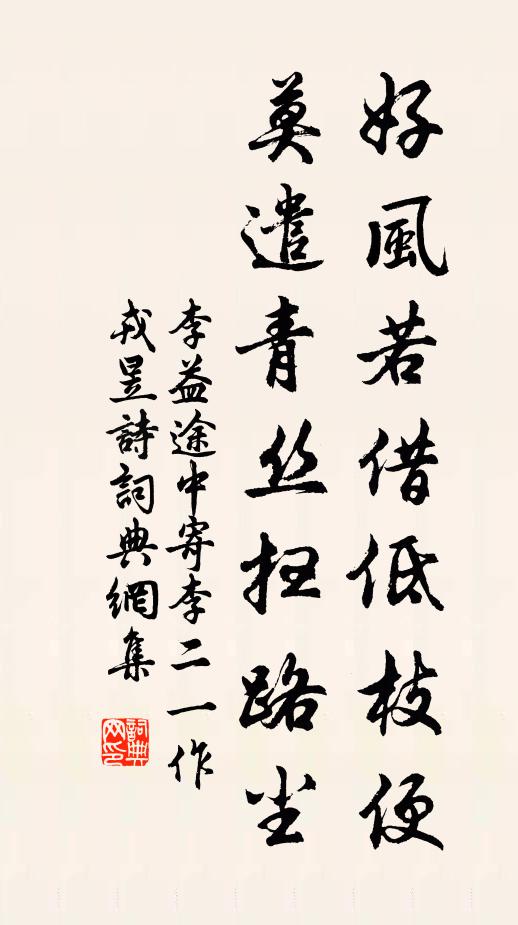 好風若借低枝便
莫遣青丝扫路尘
李益途中寄李二一作
戎昱詩詞典網集
詞典
网印